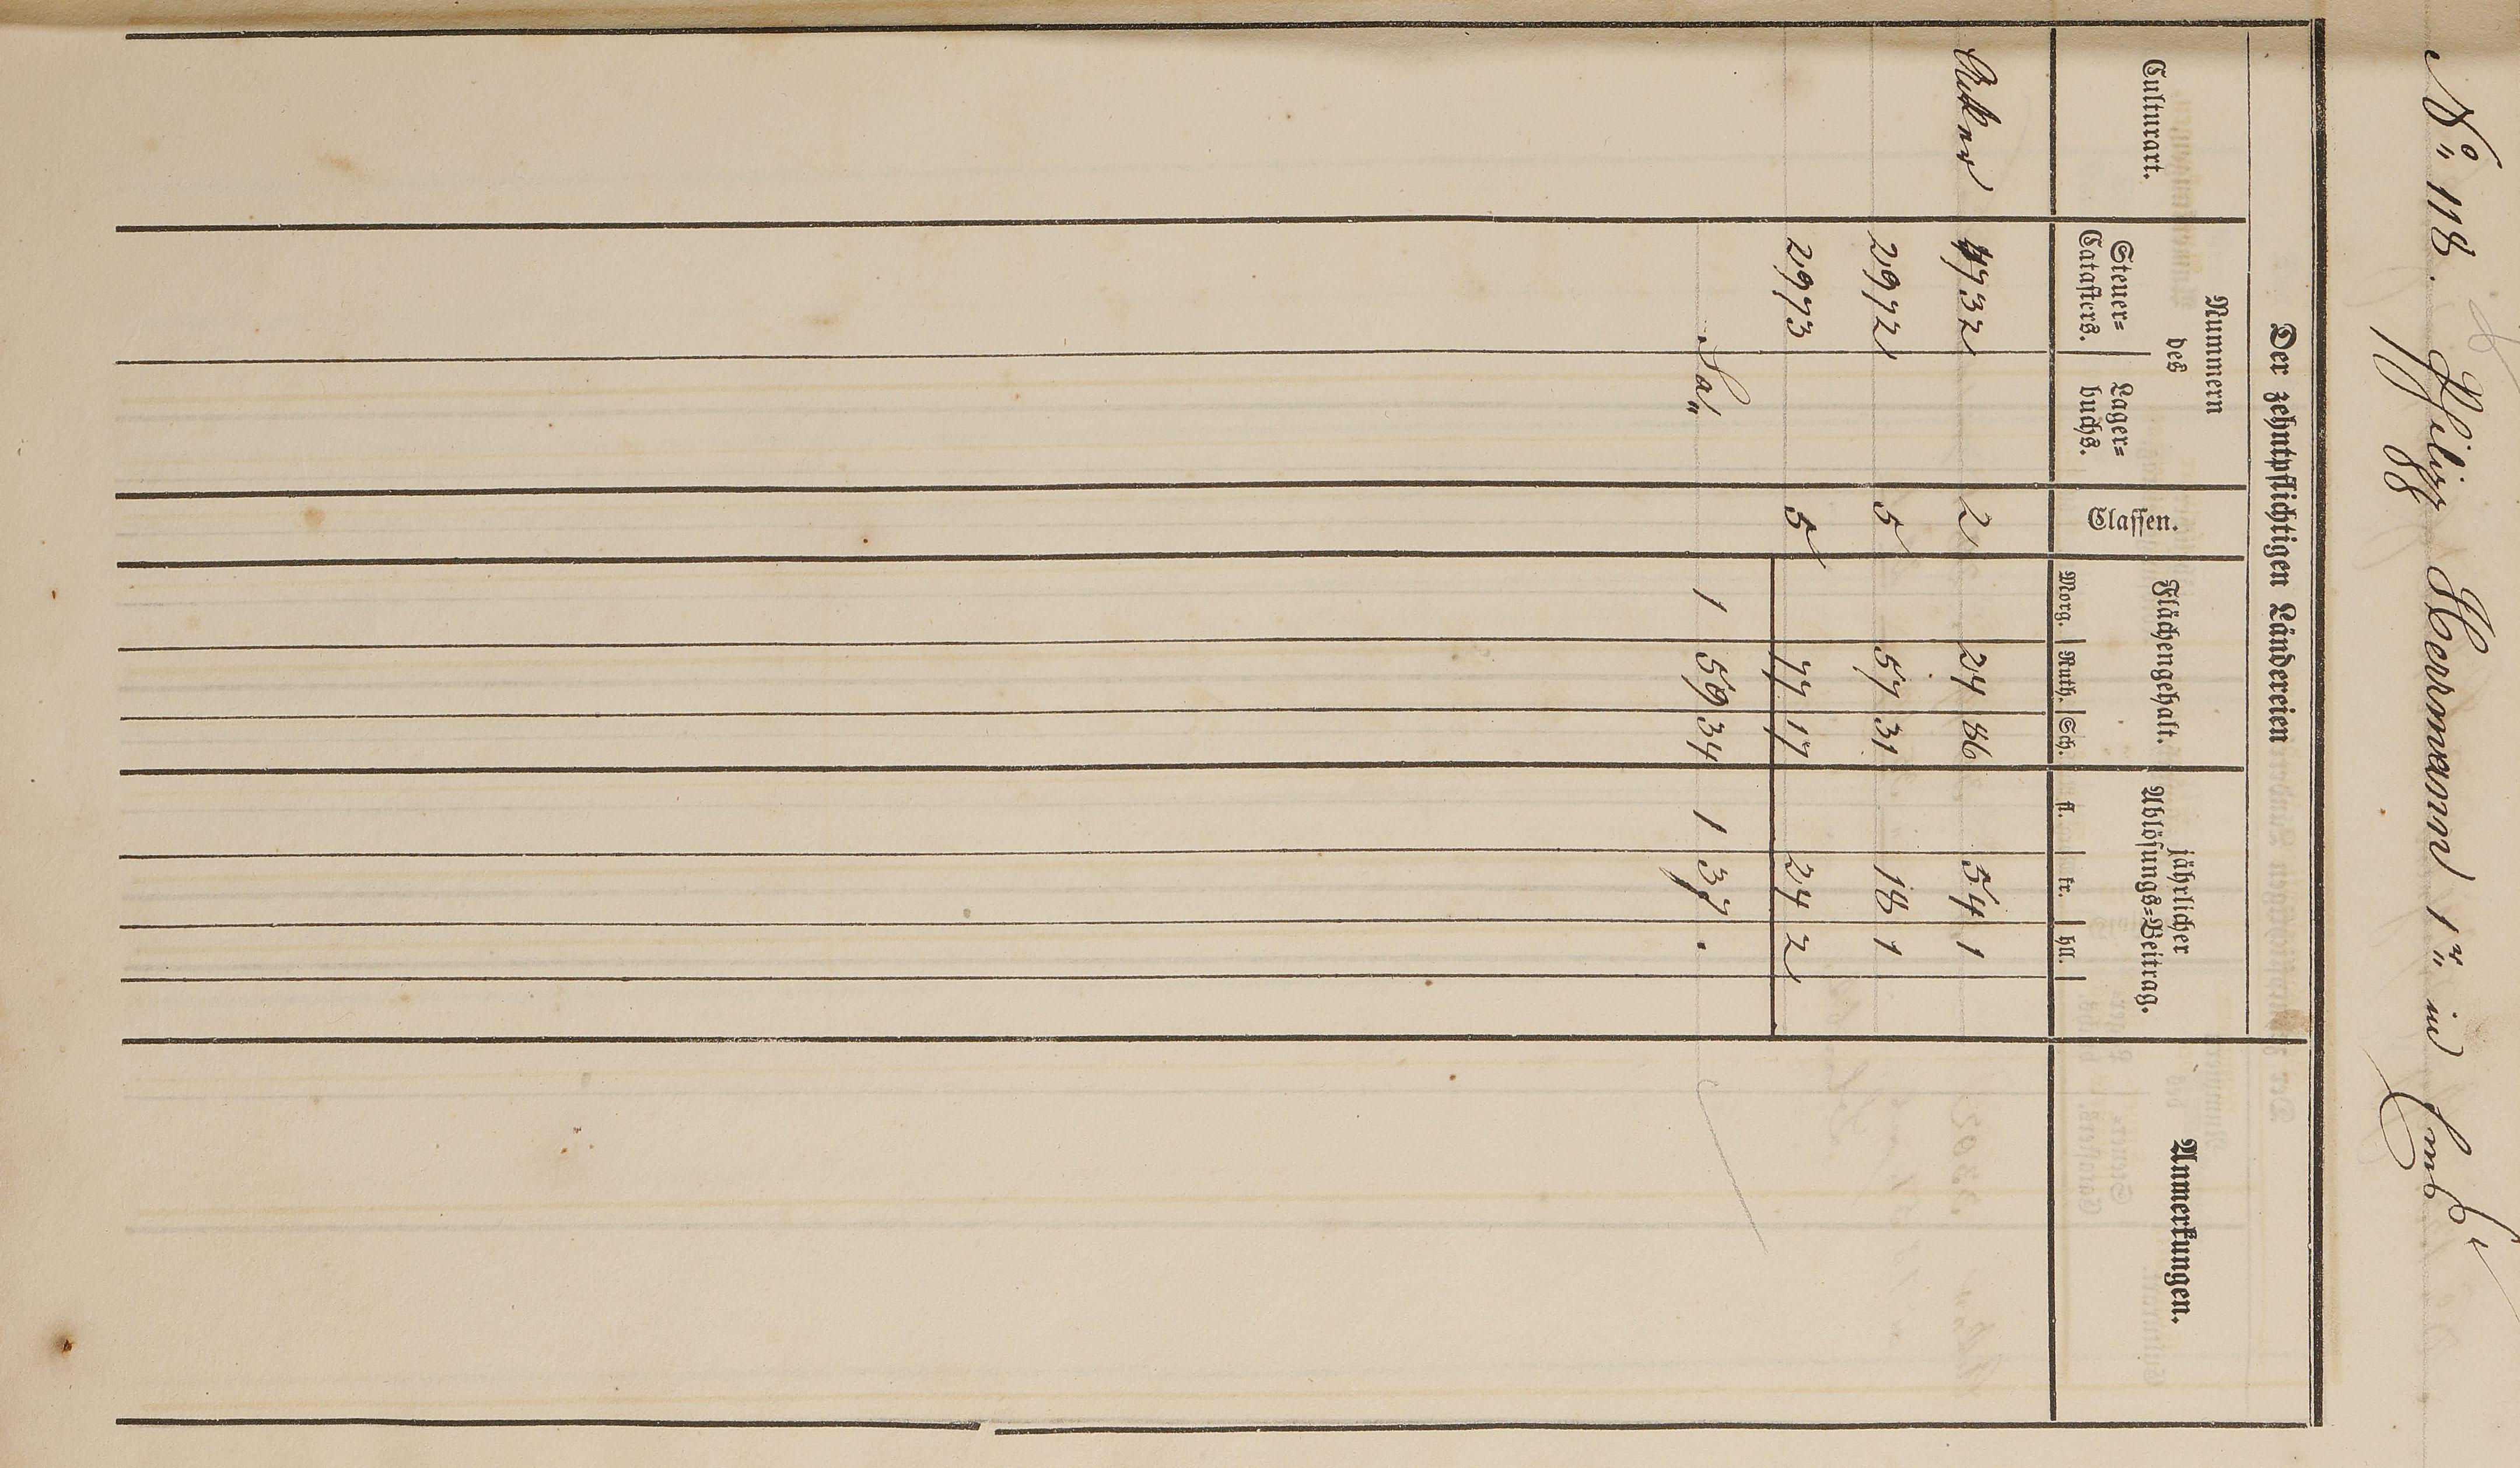 No 118. Philipp Hermann 1r in
Der zehntpflichtigen Ländereien
Anmerkungen.
Culturart.
Nummern des
Steuer=Catasters.
Lager=buchs.
Classen.
Flächengehalt.
Morg. Ruth. Sch.
jährlicher Ablösungs=Beitrag.
fl. kr. hll.
Acker 4732 2 24 86 54 1
2972 5 57 31 18 1
2973 5 77 17 24 2
Sa 1 59 34 1 37 .